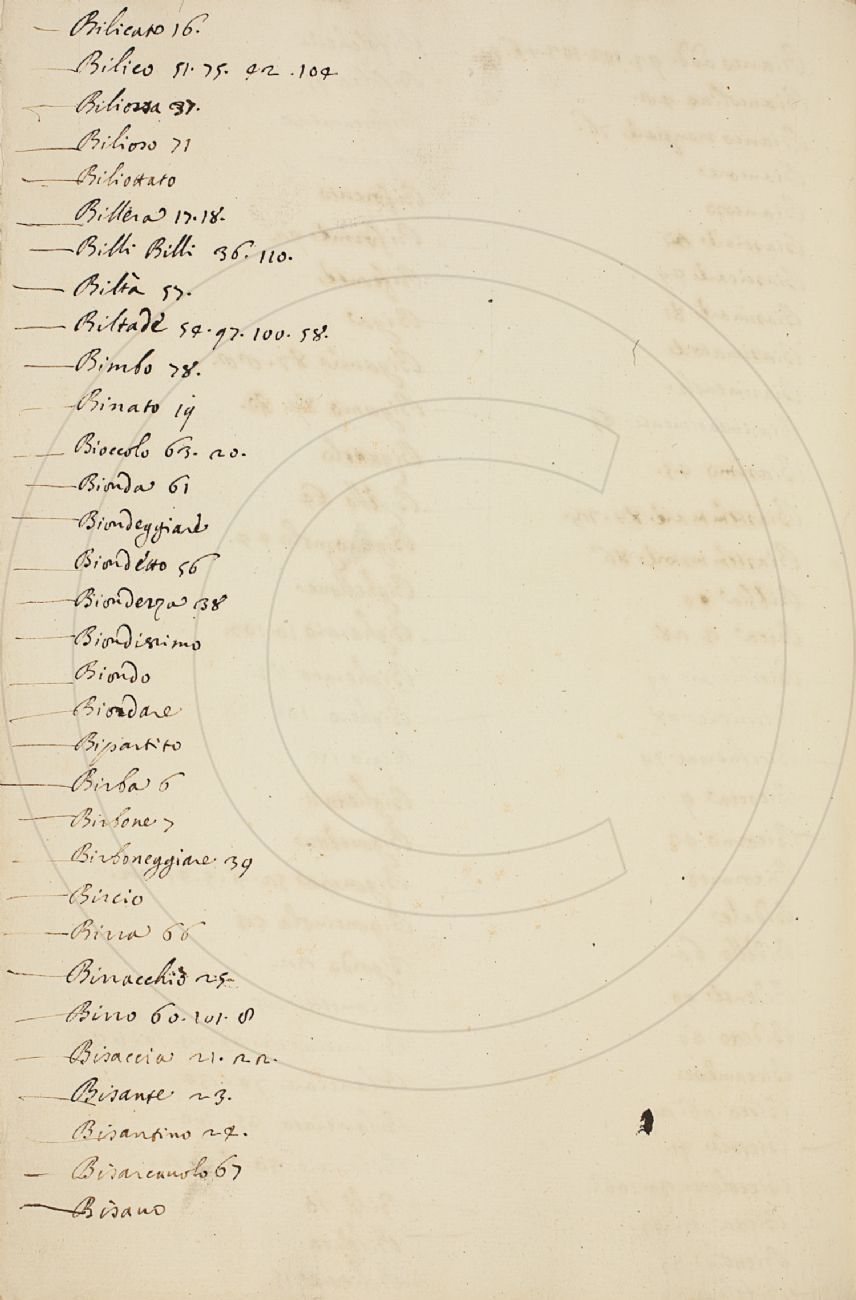 — Bilicato 16.
— Bilico 51. 75. 42. 104
— Biliorsa 37.
— Bilioso 71
— Biliottato
— Billera 17. 18.
— Billi Billi 36. 110.
— Biltà 57.
— Biltade 54. 97. 100. 58.
— Bimbo 78.
— Binato 19
— Bioccolo 63. 20.
— Bionda 61
— Biondeggiare
— Biondetto 56
— Bionderza 38
— Biondissimo
— Biondo
— Biondare
— Bipartito
— Birba 6
— Birbone 7
— Birboneggiare 39
— Bircio
— Birra 66
— Birracchio 25
— Birro 60. 101. 8
— Bisaccia 21. 22.
— Bisante 23.
— Bisantino 24.
— Bisarcavolo 67
— Bisavo